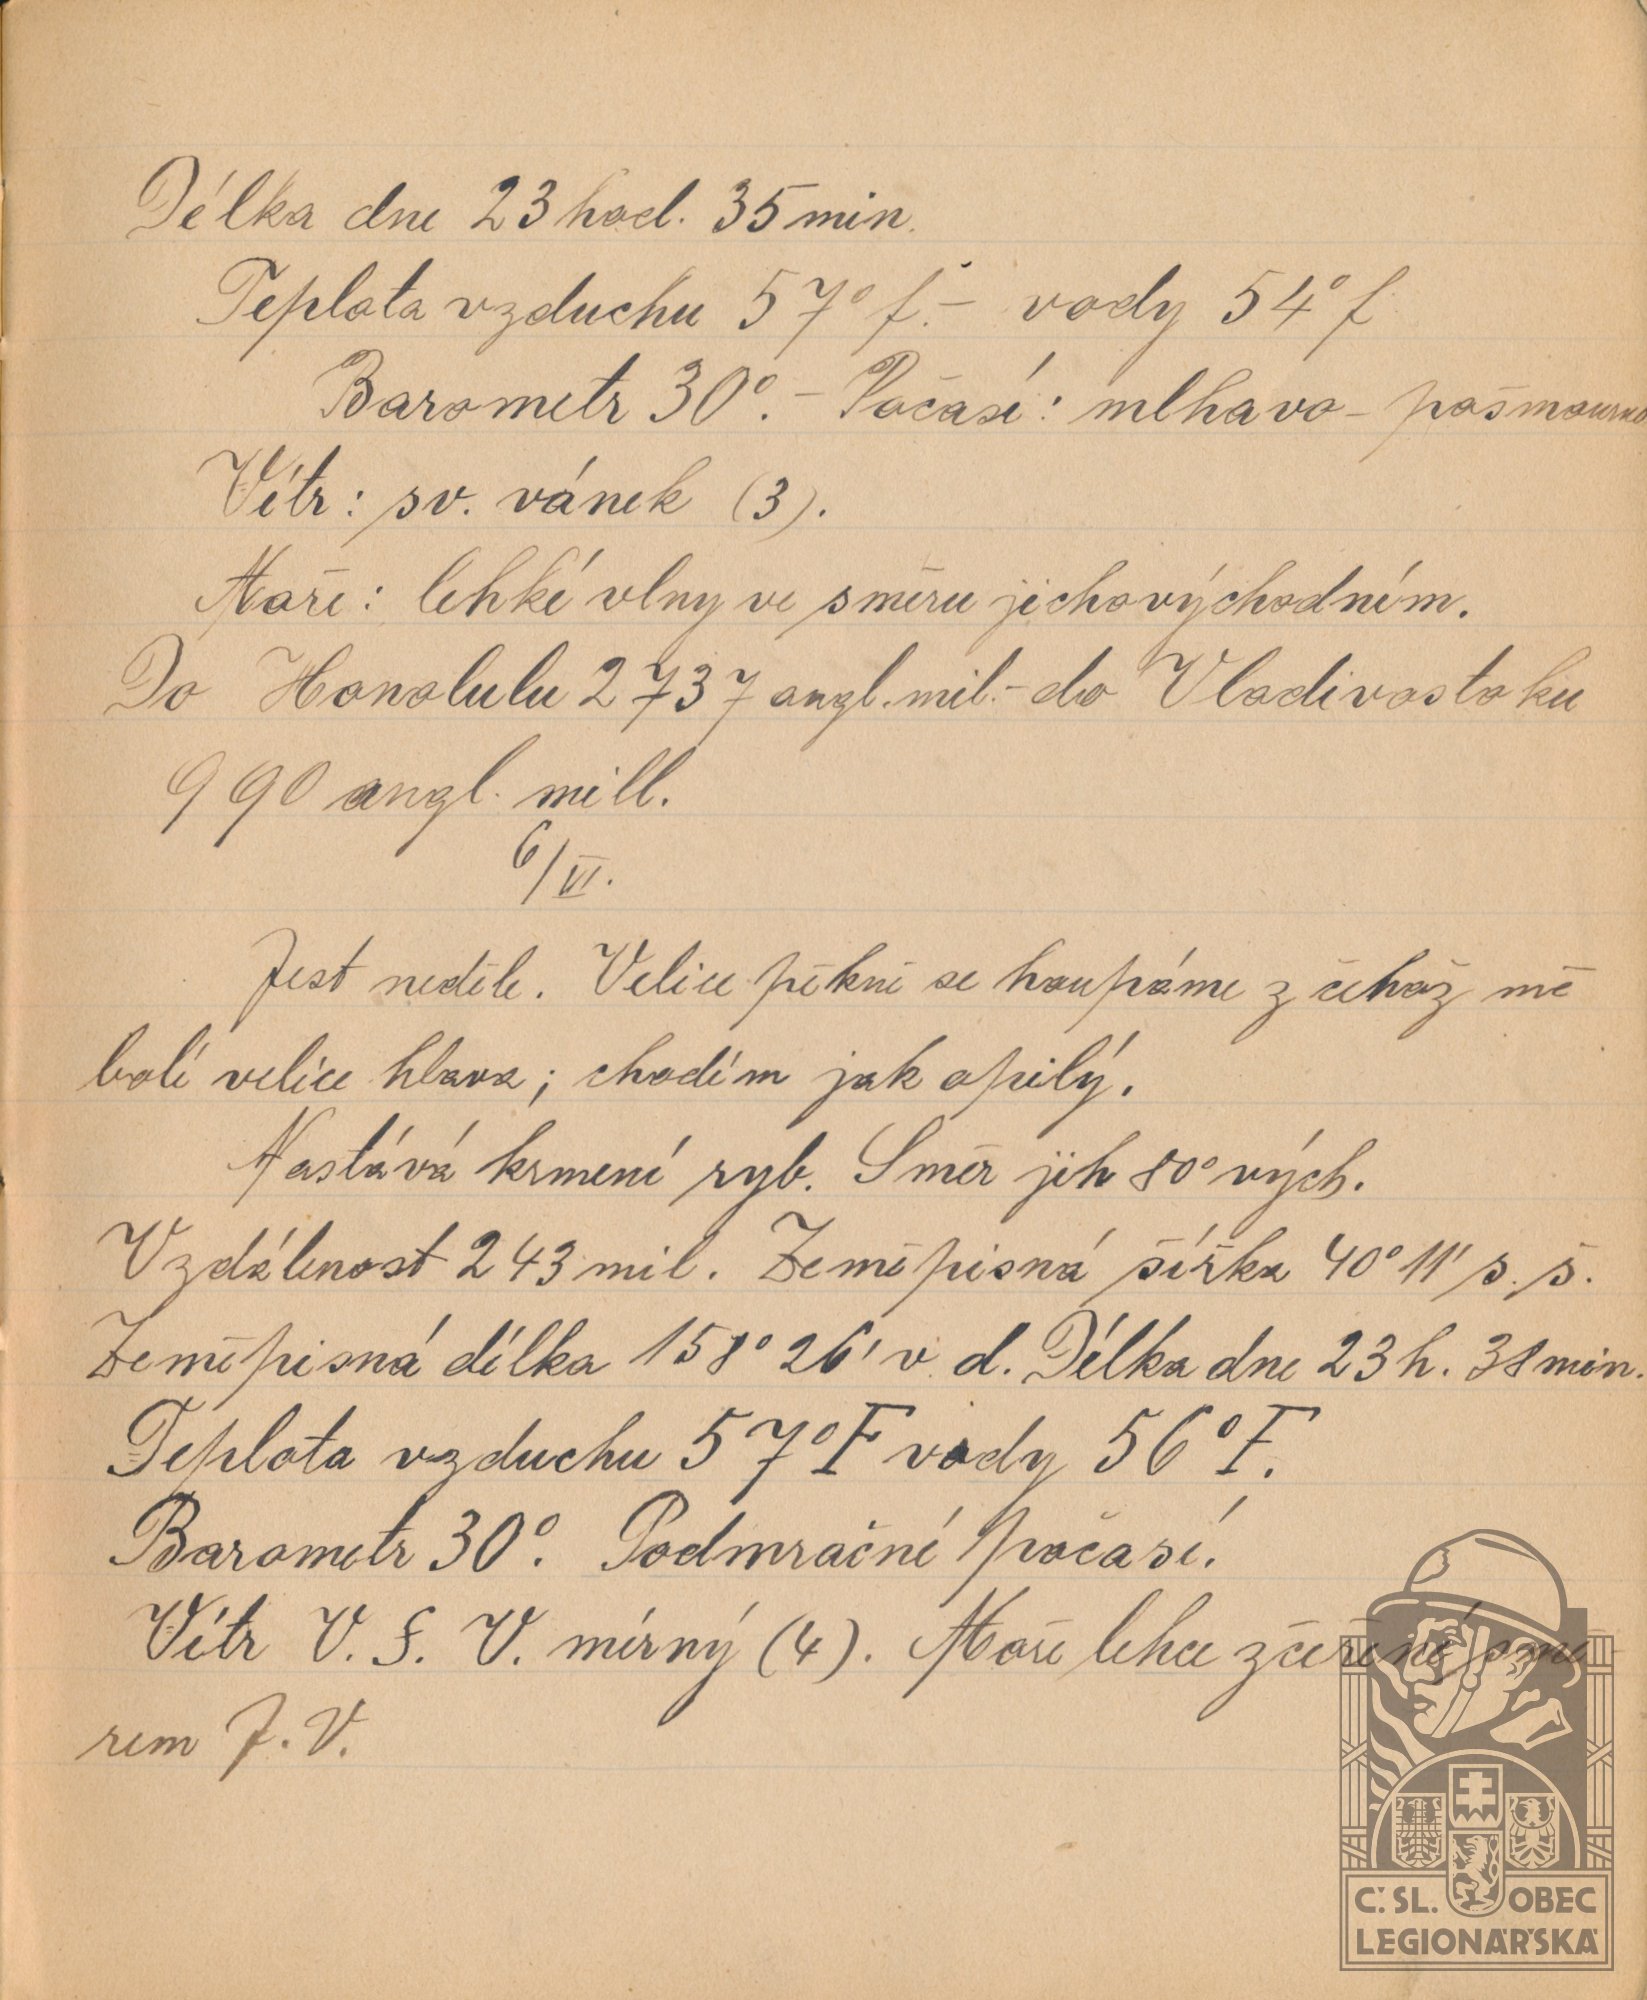 Délka dne 23 hod. 35 min.
Teplota vzduchu 57° f. – vody 54° f
Barometr 30°. – Počasí: mlhavo – pošmourno
Vítr: sv. vánek (3).
Moře: lehké vlny ve směru jichovýchodním.
Do Honolulu 2737 angl. mil. – do Vladivostoku
990 angl. mill.
6/VI.
Jest neděle. Velice pěkně se houpáme z čehož mě
bolí velice hlava; chodím jak opilý.
Nastává krmení ryb. Směr jih 80° vých.
Vzdálenost 243 mil. Zeměpisná šířka 40° 11' s. š.
Zeměpisná délka 158° 26' v d. Délka dne 23 h. 38 min.
Teplota vzduchu 57° F vody 56° F.
Barometr 30°. Podmračné počasí.
Vítr V. S. V. mírný (4). Moře lehce zčeřené smě
rem J. V.
Č. SL. OBEC
LEGIONÁŘSKÁ